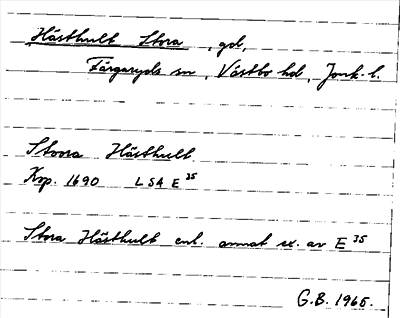 Hästhult Stora, gd,
Färgaryds sn, Västbo hd, Jonk. l.
Stoora Hästhult
Ksp. 1690 LSA E 35
Stora Hästhult enl. annat ex. av E 35
G.B. 1965.